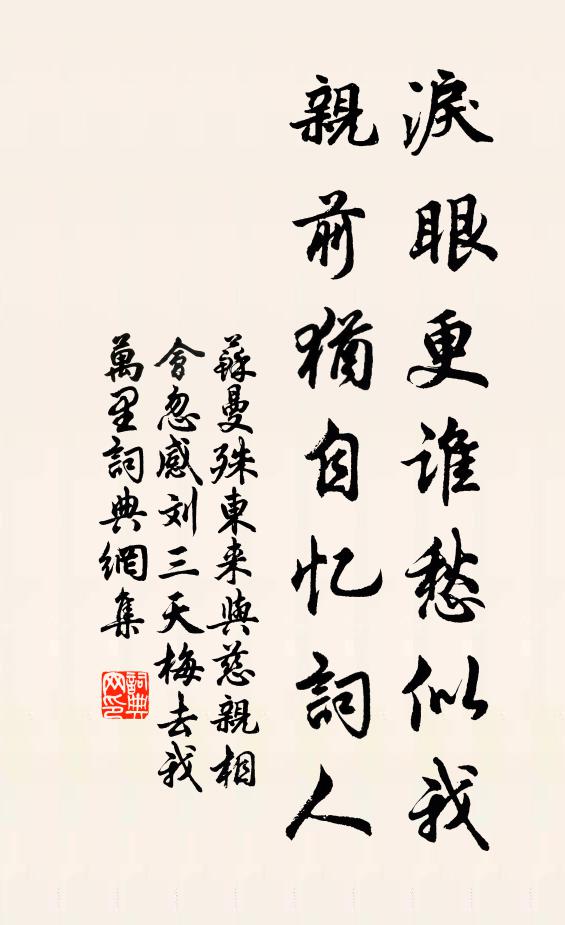 淚眼更誰愁似我
親前猶自忆詞人
蘇曼殊東来與慈親相
會忽感刘三天梅去我
萬里詞典網集
詞典
网印